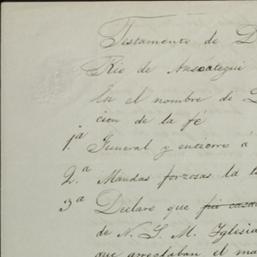 Testamento de D
Rio de Anscategui
En el nombre de D
cion de la fé
1ª General y encierro á
2.ª Mandas forzosas la t
3ª Declaro que fui casa
de N. S. M. Iglesia
que arreglaban el ma